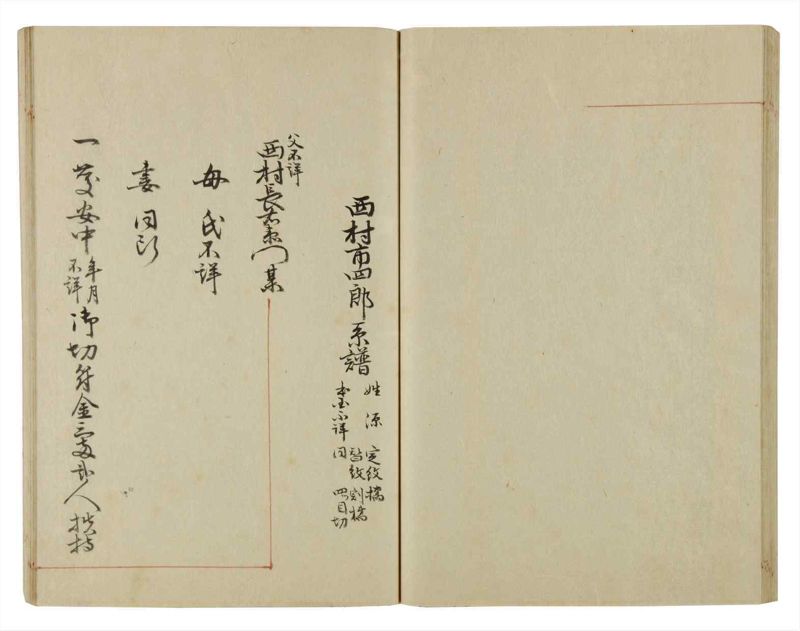 西村市四郎系譜
姓源 定紋橘
替紋割橘
本国不詳 同 四目切
父不詳
西村長右衛門某
母氏不詳
妻同断
一慶安中年月不詳御切符金三両弐人扶持